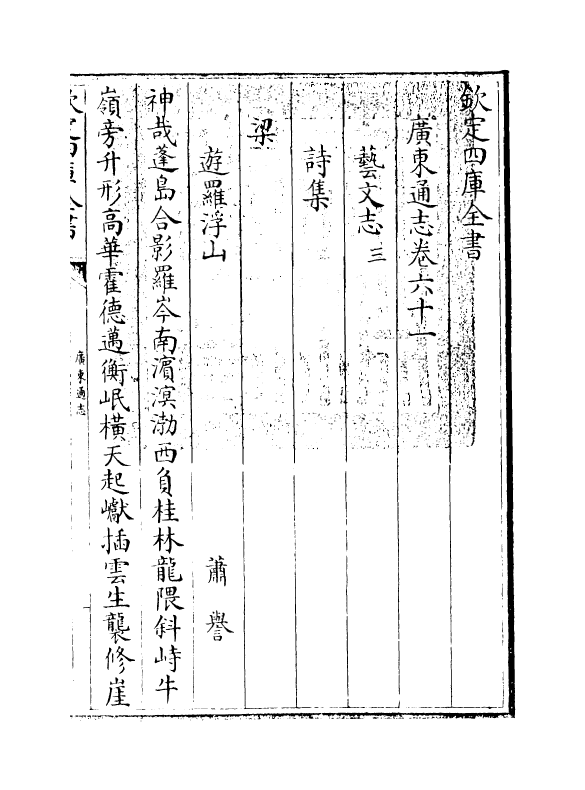 欽定四庫全書
廣東通志卷六十一
藝文志三
詩集
梁
遊羅浮山 蕭詧
神哉蓬島合影羅岑南濵溟渤西負桂林龍隈斜峙牛
嶺旁升形高華霍德邁衡岷橫天起巘插雲生襲修崖
欽定四庫全書
廣東通志